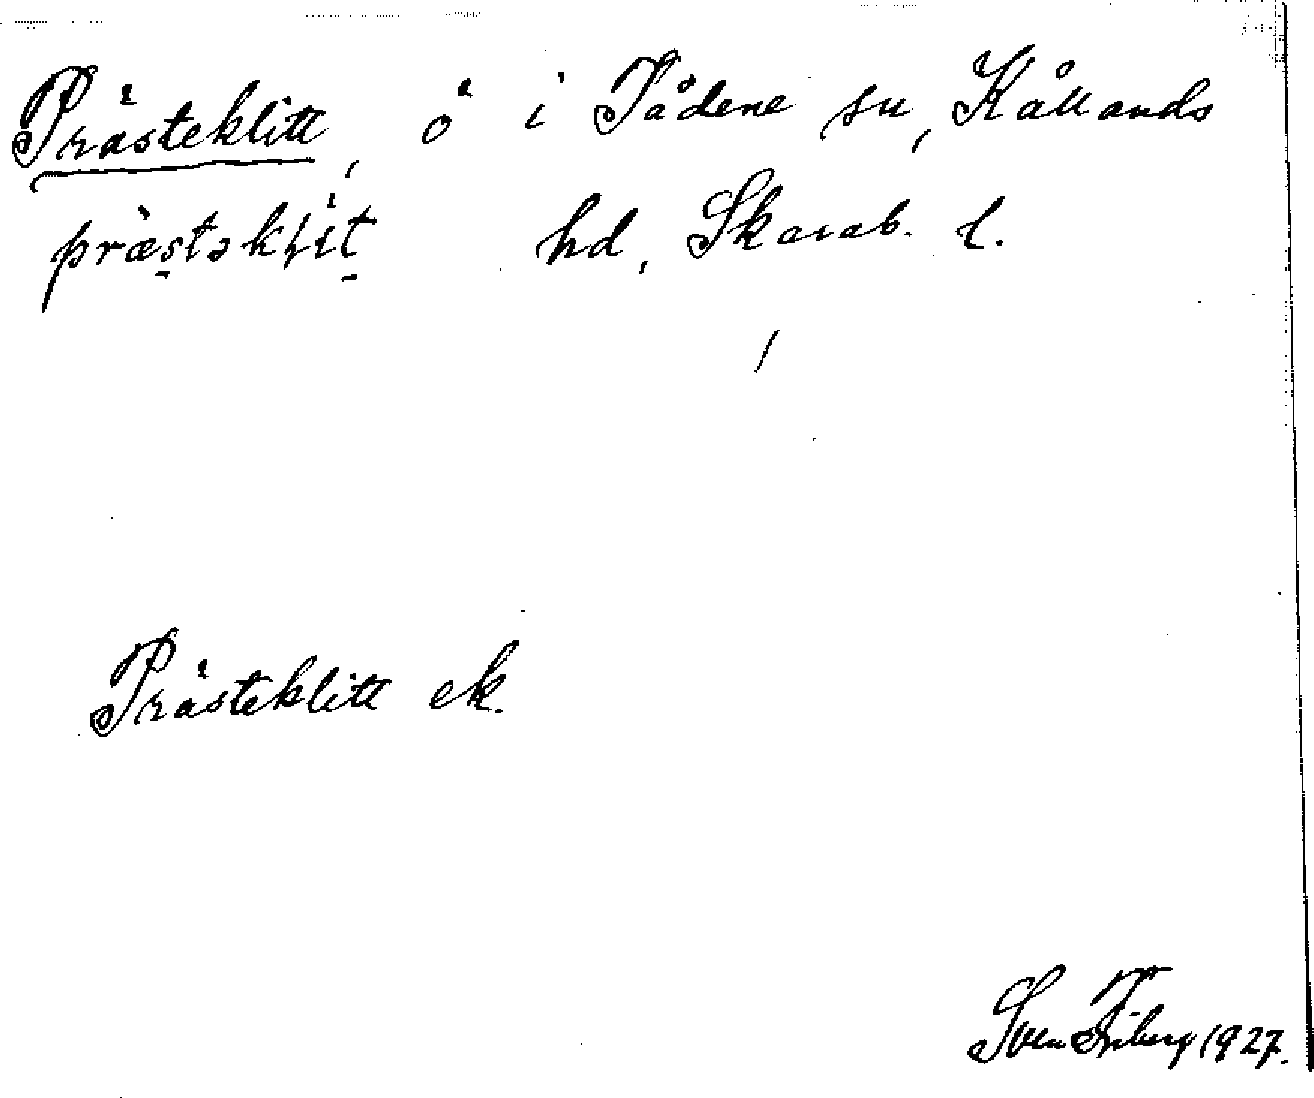 Prästeklitt, ö i Tådene sn, Kållands
præstəkļit hd, Skarab. l.
Prästeklitt ek.
Sven Friberg 1927.